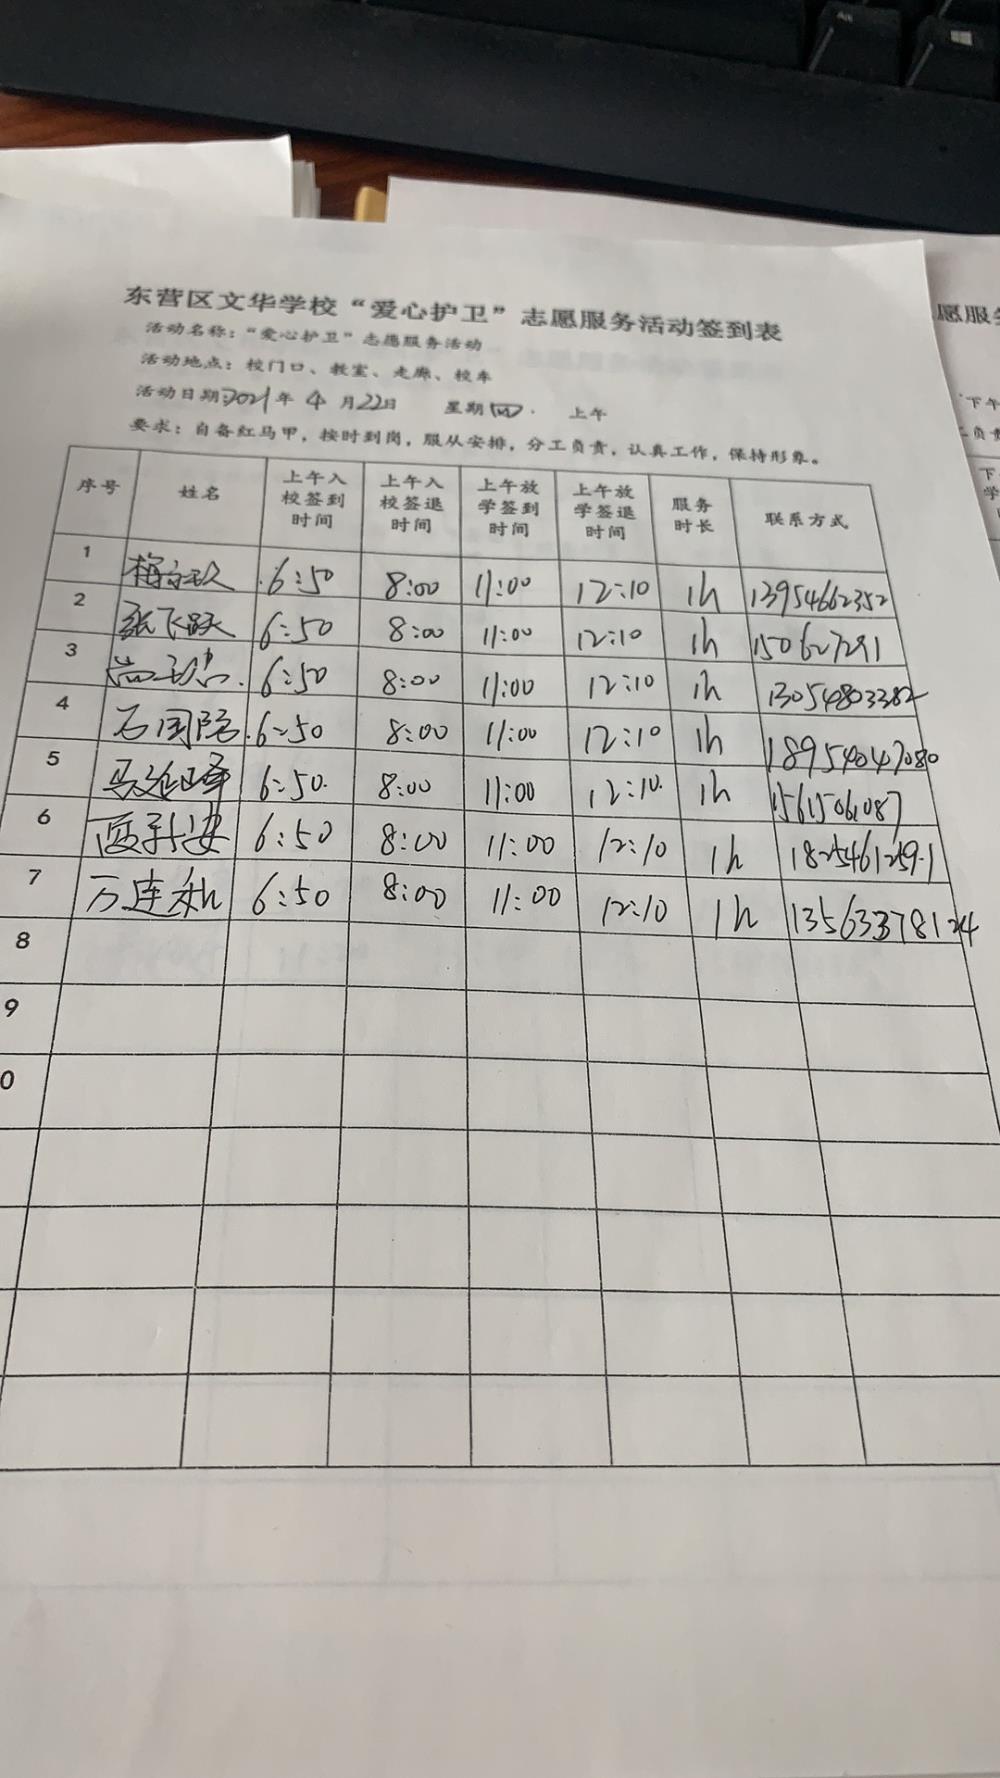 东营区文华学校“爱心护卫”志愿服务活动签到表
活动名称：“爱心护卫”志愿服务活动
活动地点：校门口、教室、走廊、校车
活动日期：2021年 4 月22日 星期 四 . 上午
要求：自备红马甲，按时到岗，服从安排，分工负责，认真工作，保持形象。
序号 姓名 上午入校签到时间 上午入校签退时间 上午放学签到时间 上午放学签退时间 服务时长 联系方式
1 6:50 8:00 11:00 12:10 1h 13954662352
2 张飞跃 6:50 8:00 11:00 12:10 1h 150627291
3 6:50 8:00 11:00 12:10 1h 13054803382
4 石国院 6:50 8:00 11:00 12:10 1h 18954047080
5 6:50 8:00 11:00 12:10 1h 1561506,087
6 6:50 8:00 11:00 12:10 1h 18254612591
7 万连永 6:50 8:00 11:00 12:10 1h 13563378124
8
9
0
愿服务
下午